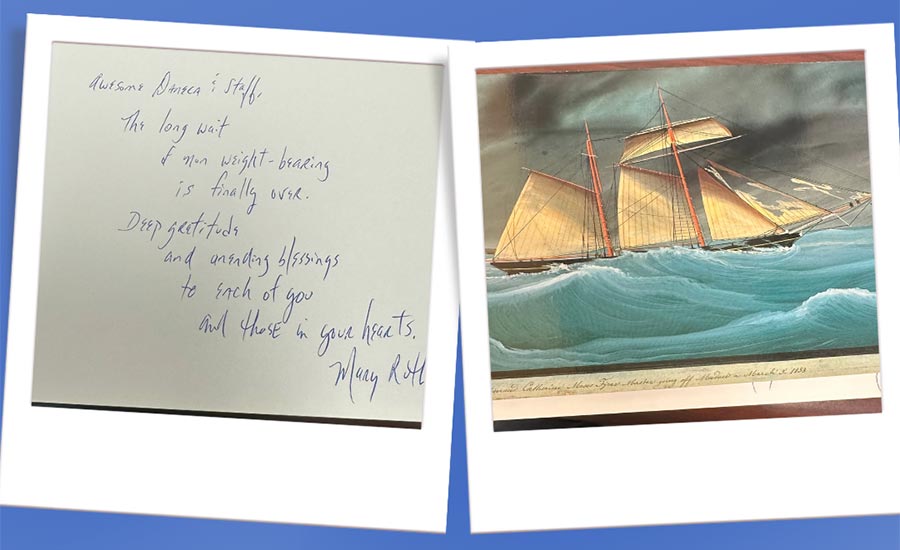 Awesome Daneca & Staff,
The long wait
of non weight-bearing
is finally over.
Deep gratitude
and unending blessings
to each of you
and those in your hearts.
Mary
Catherine, Master off March